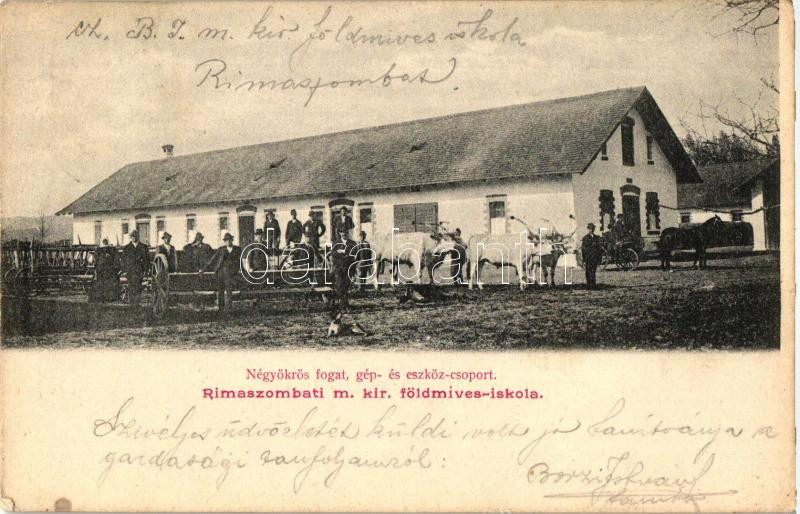 B. I. m. kir. földmives iskola
Rimaszombat.
darabanth.com
Négyökrös fogat, gép- és eszköz-csoport.
Rimaszombati m. kir. földmives-iskola.
Szivélyes üdvözletét küldi volt jó tanitványa a
gazdasági tanfolyamról: